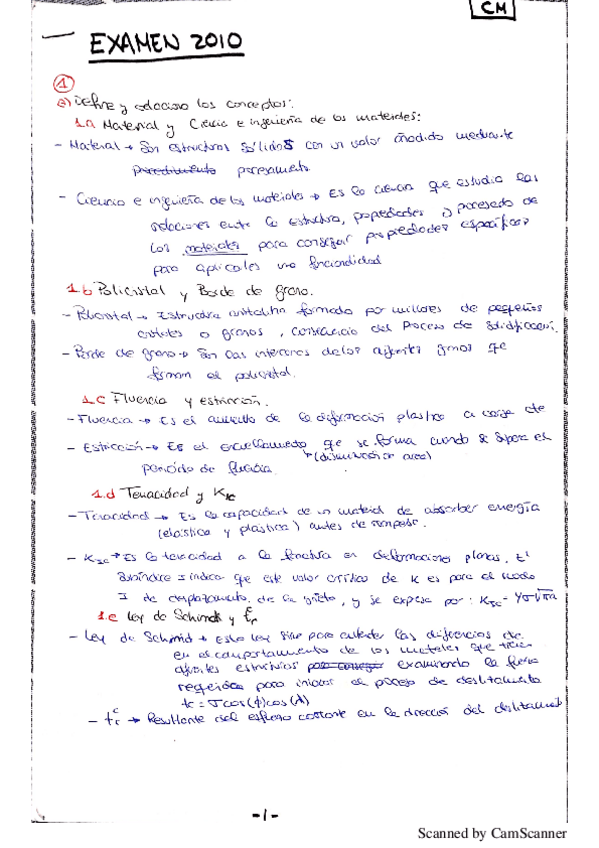 CM
EXAMEN 2010
1
a) Define y relaciona los conceptos:
1.a Material y Ciencia e ingeniería de los materiales:
- Material → Son estructuras sólidas con un valor añadido mediante
procedimiento procesamiento.
- Ciencia e ingeniería de los materiales → Es la ciencia que estudia las
relaciones entre la estructura, propiedades y procesado de
los materiales para conseguir propiedades específicas
para aplicarles una funcionalidad
1.b Policristal y Borde de grano.
- Policristal → Estructura cristalina formada por millones de pequeños
cristales o granos, consecuencia del Proceso de Solidificación.
- Borde de grano → Son las interfases de los diferentes granos que
forman el policristal.
1.c Fluencia y estricción.
- Fluencia → Es el aumento de la deformación plástica a carga cte
- Estricción → Es el que se forma cuando se supera el
(disminución de area)
periodo de fluencia.
1.d Tenacidad y KIC
- Tenacidad → Es la capacidad de un material de absorber energía
(elástica y plástica) antes de romper.
- KIC → Es la tenacidad a la fractura en deformaciones planas, El
subíndice I indica que este valor crítico de K es para el modo
I de desplazamiento de la grieta, y se expresa por: KIC = Yσ√πa
1.e Ley de Schmidt y
- Ley de Schmid → Esta ley sirve para entender las diferencias de
en el comportamiento de los metales que tienen
diferentes estructuras para conseguir examinando la fuerza
requerida para iniciar el proceso de deslizamiento
tc = σcos(ϕ)cos(λ)
- → Resultante del esfuerzo cortante en la dirección del deslizamient
-1-
Scanned by CamScanner